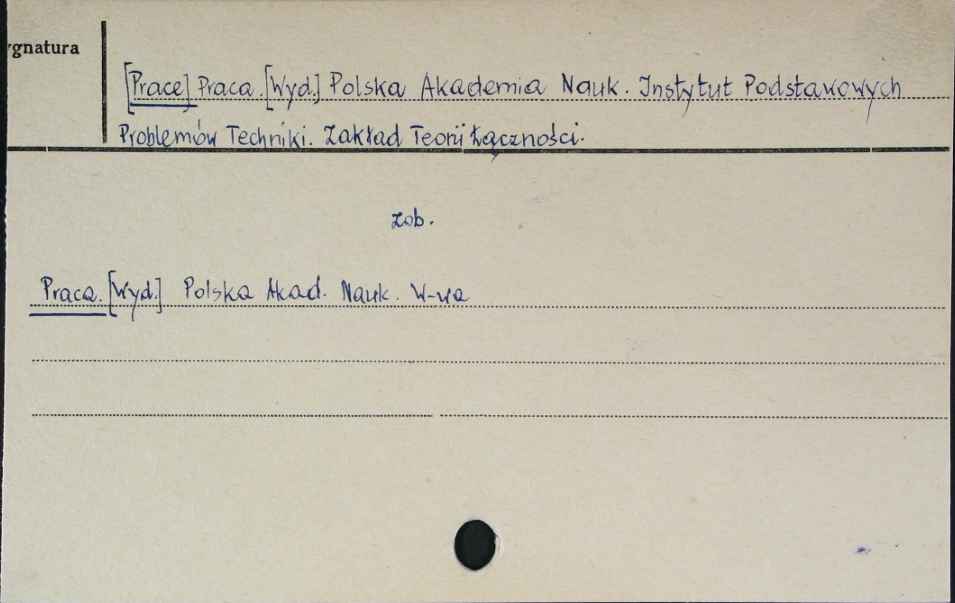 ygnatura
[Prace] Praca. [Wyd.] Polska Akademia Nauk. Instytut Podstawowych
Problemów Techniki. Zakład Teorii Łączności.
zob.
Praca. [Wyd.] Polska Akad. Nauk. W-wa